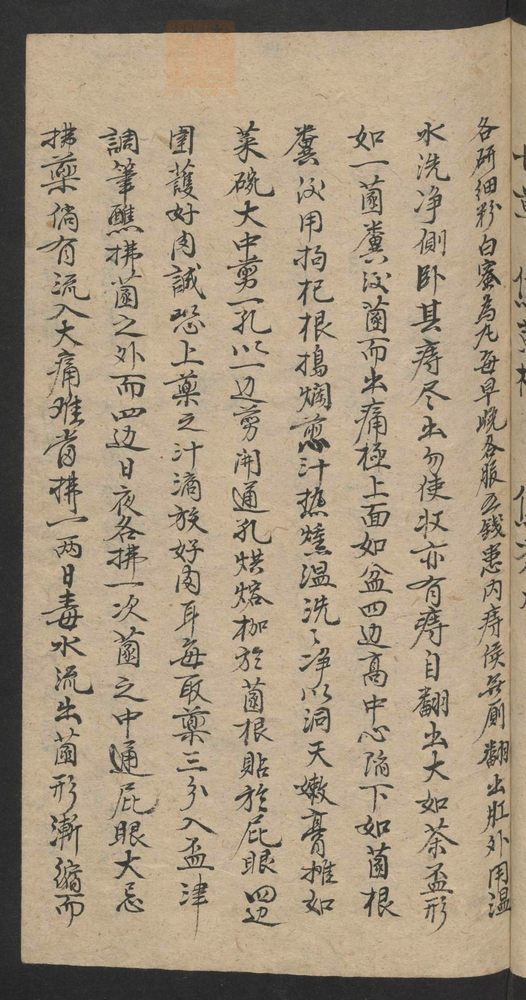 各研细粉白蜜为丸每早晚各服五錢患内痔侯登厠翻出肛外用温
水洗净側卧其痔尽出勿使收亦有痔自翻出大如茶盃形
如一菌糞後菌而出痛極上面如盆四边高中心陷下如菌根
糞後用枸杞根搗爛煎汁热燻温洗〻净以洞天嫩膏摊如
菜碗大中剪一孔以一边剪開通孔烘熔枷於菌根貼於屁眼四边
围護好肉誠恐上藥之汁滴於好肉耳每取藥三分入盃津
調筆醮拂菌之外而四边日夜各拂一次菌之中通屁眼大忌
拂藥倘有流入大痛难当拂一两日毒水流出菌形漸縮而